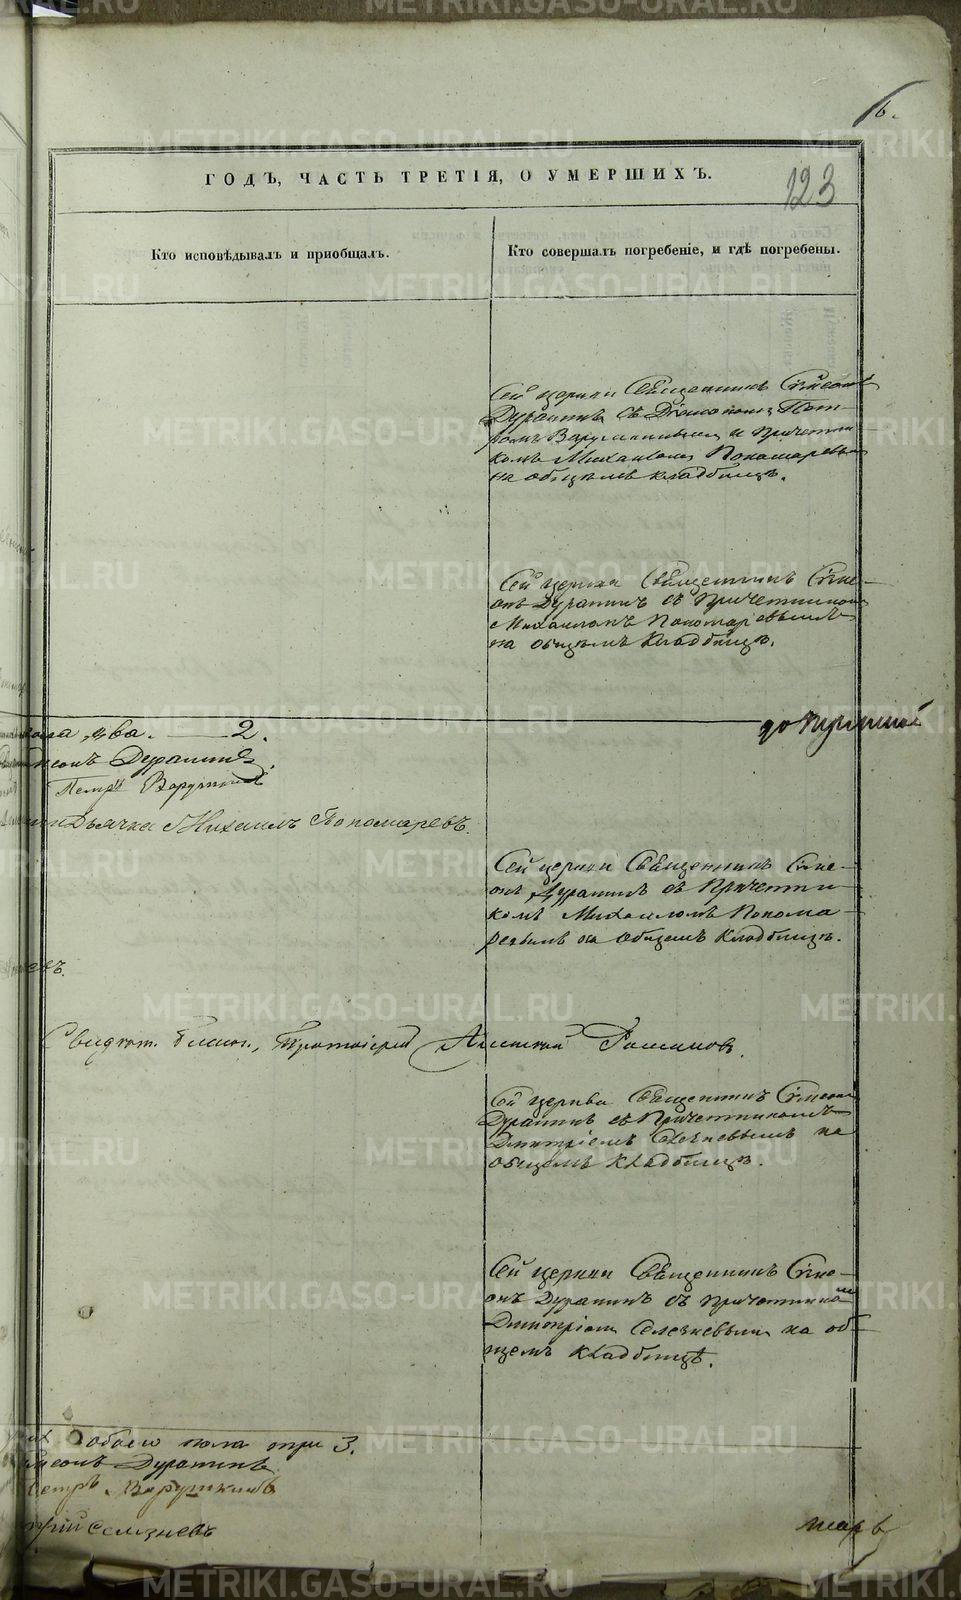 METRIKI.GASO-URAL.RU
6.
123
ГОДЪ, ЧАСТЬ ТРЕТІЯ, О УМЕРШИХЪ.
Кто исповѣдывалъ и пріобщалъ.
Кто совершалъ погребеніе, и гдѣ погребены.
Сей церкви Священникъ Сѵмеонъ
Дурапинъ съ Діакономъ Пет-
ромъ Варушкинымъ и Причетни-
комъ Михаиломъ Пономаревымъ
на общемъ кладбищѣ.
Сей церкви Священникъ Сѵме-
онъ Дурапинъ съ Причетникомъ
Михаиломъ Пономаревымъ
на общемъ кладбищѣ.
пола два. 2.
меонъ Дурапинъ.
Петръ Варушкинъ
Дьячка Михаилъ Пономаревъ.
Сей церкви Священникъ Сѵме-
онъ Дурапинъ съ Причетни-
комъ Михаиломъ Понома-
ревымъ на общемъ кладбищѣ.
Протоіерей
Сей церкви Священникъ Сѵмеонъ
Дурапинъ съ Причетникомъ
Димитріемъ Селезневымъ на
общемъ кладбищѣ.
Сей церкви Священникъ Сѵме-
онъ Дурапинъ съ Причетникомъ
Димитріемъ Селезневымъ на об-
щемъ кладбищѣ.
обоего пола три 3.
меонъ Дурапинъ
Петръ Варушкинъ
трій Селезневъ